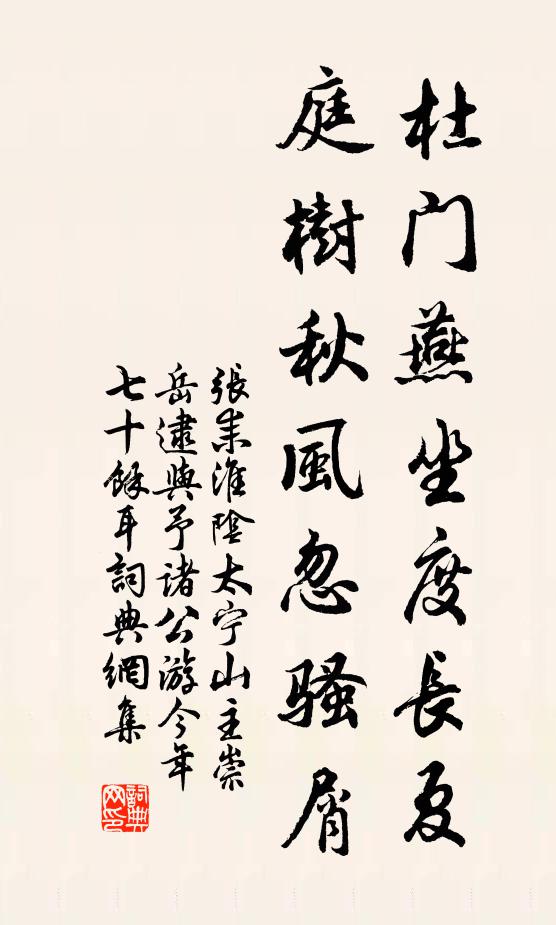 杜門燕坐度長夏
庭樹秋風忽騷屑
張耒淮陰太宁山主崇
岳逮與予諸公游今年
七十餘耳詞典網集
詞典网印